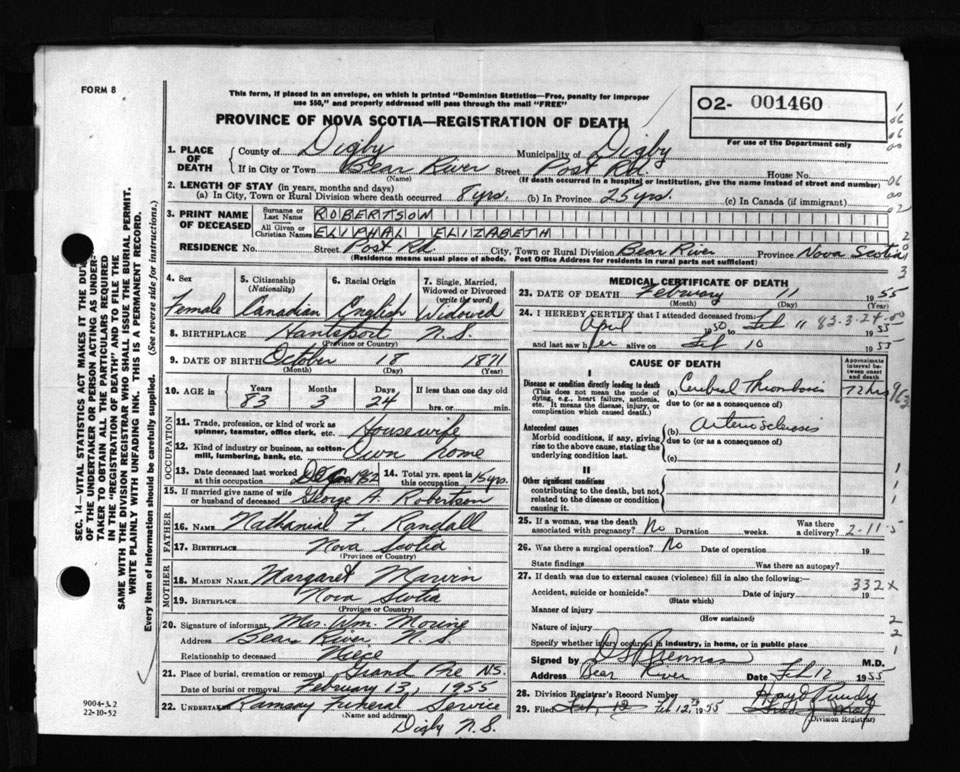 FORM 8
This form, if placed in an envelope, on which is printed "Dominion Statistics—Free, penalty for improper
use $50," and properly addressed will pass through the mail "FREE"
PROVINCE OF NOVA SCOTIA—REGISTRATION OF DEATH
O2- 001460
For use of the Department only
1. PLACE OF DEATH County of Digby Municipality of Digby
If in City or Town Bear River Street Post Rd. House No.
(Name) (If death occurred in a hospital or institution, give the name instead of street and number)
2. LENGTH OF STAY (in years, months and days)
(a) In City, Town or Rural Division where death occurred 8 yrs. (b) In Province 25 yrs. (c) In Canada (if immigrant)
3. PRINT NAME OF DECEASED Surname or Last Name ROBERTSON
All Given or Christian Names ELIPHAL ELIZABETH
RESIDENCE No. Street Post Rd. City, Town or Rural Division Bear River Province Nova Scotia
(Residence means usual place of abode. Post Office Address for residents in rural parts not sufficient)
4. Sex Female
5. Citizenship (Nationality) Canadian
6. Racial Origin English
7. Single, Married, Widowed or Divorced (write the word) Widowed
8. BIRTHPLACE Hantsport N.S.
(Province or Country)
9. DATE OF BIRTH October 18 1871
(Month) (Day) (Year)
10. AGE in Years 83 Months 3 Days 24 If less than one day old hrs. or min.
OCCUPATION
11. Trade, profession, or kind of work as spinner, teamster, office clerk, etc. Housewife
12. Kind of industry or business, as cotten-mill, lumbering, bank, etc. Own home
13. Date deceased last worked at this occupation
14. Total yrs. spent in this occupation
15. If married give name of wife or husband of deceased George A. Robertson
FATHER
16. NAME Nathanial F. Randall
17. BIRTHPLACE Nova Scotia
(Province or Country)
MOTHER
18. MAIDEN NAME Margaret Marvin
19. BIRTHPLACE Nova Scotia
(Province or Country)
20. Signature of informant Mrs. Wm. Morine
Address Bear River N.S.
Relationship to deceased Niece
21. Place of burial, cremation or removal Grand Pre N.S.
Date of burial or removal February 13, 1955
22. UNDERTAKER Ramsay Funeral Service
(Name and address)
Digby N.S.
MEDICAL CERTIFICATE OF DEATH
23. DATE OF DEATH Febuary 11 1955
(Month) (Day) (Year)
24. I HEREBY CERTIFY that I attended deceased from:
April 1950 to Feb 11 1955
83-3-24-00
and last saw her alive on Feb 10 1955
CAUSE OF DEATH
Approximate interval between onset and death
I
Disease or condition directly leading to death
(This does not mean the mode of dying, e.g., heart failure, asthenia, etc. It means the disease, injury, or complication which caused death.)
(a) Cerebral Thrombosis 72 hrs
due to (or as a consequence of)
Antecedent causes
Morbid conditions, if any, giving rise to the above cause, stating the underlying condition last.
(b) Arterio Sclerosis
due to (or as a consequence of)
(c)
II
Other significant conditions
contributing to the death, but not related to the disease or condition causing it.
25. If a woman, was the death associated with pregnancy? No Duration weeks. Was there a delivery? 2-11-5
26. Was there a surgical operation? No Date of operation 19
State findings Was there an autopsy?
27. If death was due to external causes (violence) fill in also the following:
332X
Accident, suicide or homicide? Date of injury 19
(State which)
Manner of injury
(How sustained)
Nature of injury
Specify whether injury occurred in industry, in home, or in public place
Signed by M.D.
Address Bear River Date Feb 12 1955
28. Division Registrar's Record Number
29. Filed Feb. 12 Feb 12th 1955
Division Registrar)
SEC. 14—VITAL STATISTICS ACT MAKES IT THE DUTY
OF THE UNDERTAKER OR PERSON ACTING AS UNDER-
TAKER TO OBTAIN ALL THE PARTICULARS REQUIRED
IN THE "REGISTRATION OF DEATH" AND TO FILE THE
SAME WITH THE DIVISION REGISTRAR WHO SHALL ISSUE THE BURIAL PERMIT.
WRITE PLAINLY WITH UNFADING INK. THIS IS A PERMANENT RECORD.
Every item of information should be carefully supplied. (See reverse side for instructions.)
9004-3.2
22-10-52